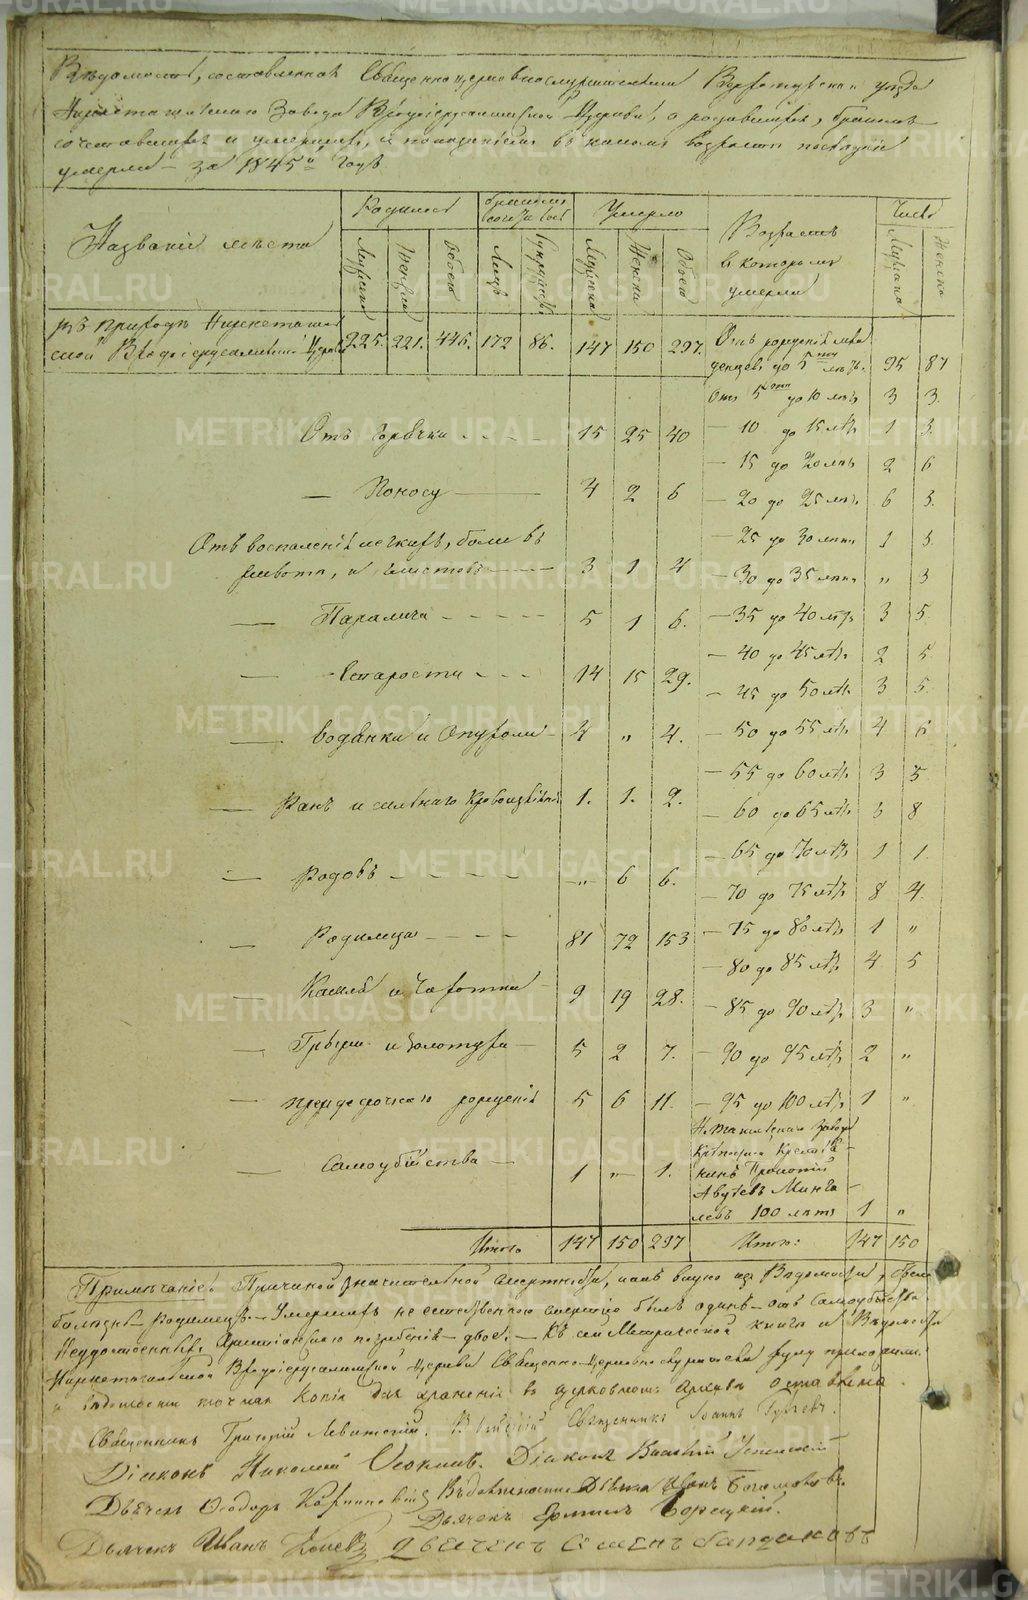 Вѣдомость, составленная Священноцерковнослужителями Верхотурскаго уѣзда
Нижнетагильского Завода Входоіерусалимской Церкви, о родившихся, бракомъ
сочетавшихся и умершихъ, съ показаніемъ въ какомъ возрастѣ послѣдніе
умерли - за 1845й годъ.
Названіе мѣста
Родилось
Мужеска
Женска
Обоего
бракомъ сочеталось
Лицъ
Супружествъ
Умерло
Мужеска
Женска
Обоего
Возрастъ
въ которомъ
умерли
Число
Мужеска
Женска
Въ приходѣ Нижнетагиль
ской Входоіерусалимской Церкви
225. 221. 446. 172 86. 147 150 297.
Отъ рожденія мла
денцевъ до 5 лѣтъ. 95 87
Отъ 5 до 10 лѣтъ 3 3.
Отъ Горячки 15 25 40
— 10 до 15 лѣтъ 1 3.
— 15 до 20 лѣтъ 2 6
— Поносу 4 2 6
— 20 до 25 лѣтъ 6 3.
Отъ воспаленія легкихъ, боли въ
животѣ, и глистовъ 3 1 4
— 25 до 30 лѣтъ 1 3.
— 30 до 35 лѣтъ „ 3
— Паралича 5 1 6.
— 35 до 40 лѣтъ 3 5.
— 40 до 45 лѣтъ 2 5
— Старости 14 15 29.
— 45 до 50 лѣтъ 3 5.
— Водянки и Опухоли 4 „ 4.
— 50 до 55 лѣтъ 4
— 55 до 60 лѣтъ 3 5
— Ранъ и сильнаго Кровоизлитія 1. 1. 2.
— 60 до 65 лѣтъ 3 8
— 65 до 70 лѣтъ 1 1.
— Родовъ „ 6 6.
— 70 до 75 лѣтъ 8 4.
— Родимца 81 72 153
— 75 до 80 лѣтъ 1 „
— 80 до 85 лѣтъ 4 5
— Кашля и Чахотки 9 19 28.
— 85 до 90 лѣтъ 3 „
— Грыжи и Золотухи 5 2 7.
— 90 до 95 лѣтъ 2 „
— преждесрочнаго рожденія 5 6 11.
— 95 до 100 лѣтъ 1 „
— Самоубійства 1 „ 1.
Н. Тагильскаго завода
Минга
левъ 100 лѣтъ 1 „
Итого 147 150 297 Итого: 147 150
Примѣчаніе: Причиной значительной смертности, какъ видно изъ Вѣдомости,
болѣзнь Родимецъ. Умершихъ не естественною смертію былъ одинъ — отъ Самоубійства.
Неудостоенныхъ Христіанскаго погребенія — двое. — Къ сей Метрической книгѣ и Вѣдомости
Нижнетагильской Входоіерусалимской Церкви Священно-Церковнослужители руку приложили.
и точная Копія для храненія въ церковномъ Архивѣ оставлена.
Священникъ Григорій Левитскій. Священникъ Іоаннъ
Діаконъ Николай Діаконъ Василій Успенскій
Дьячекъ Ѳеодоръ Карпинскій Иванъ Богомоловъ.
Дьячекъ Ермилъ Борецкій.
Дьячекъ Иванъ Семенъ
METRIKI.GASO-URAL.RU